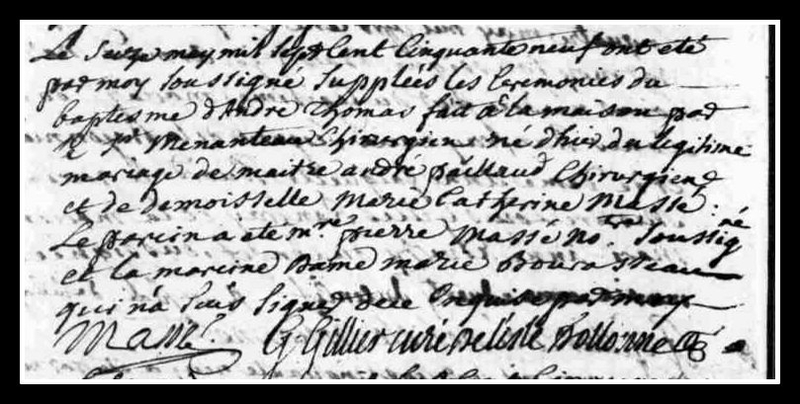 Le seize may mil sept cent cinquante neuf ont eté
par moy soussigne supplées les ceremonies du
baptesme d'André Thomas fait à la maison par
Mr pre Menanteau Chirurgien né d'hier du legitime
mariage de maitre andré paillaud Chirurgien
et de demoiselle Marie Catherine Massé.
Le parein a eté mre pierre Massé nore soussigné
et la mareine Dame marie Bourasseau
qui n'a sçus signer de ce Enquise par moy
Massé. G Gillier curé de lisle Dollonne